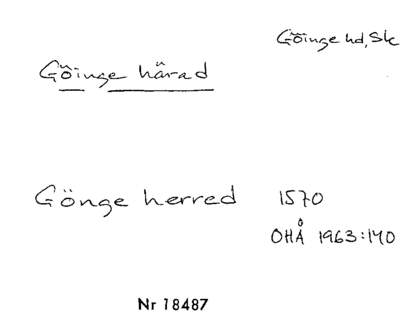 Göinge hd, Sk
Göinge härad
Gönge herred 1570
OHÅ 1963:140
Nr 18487